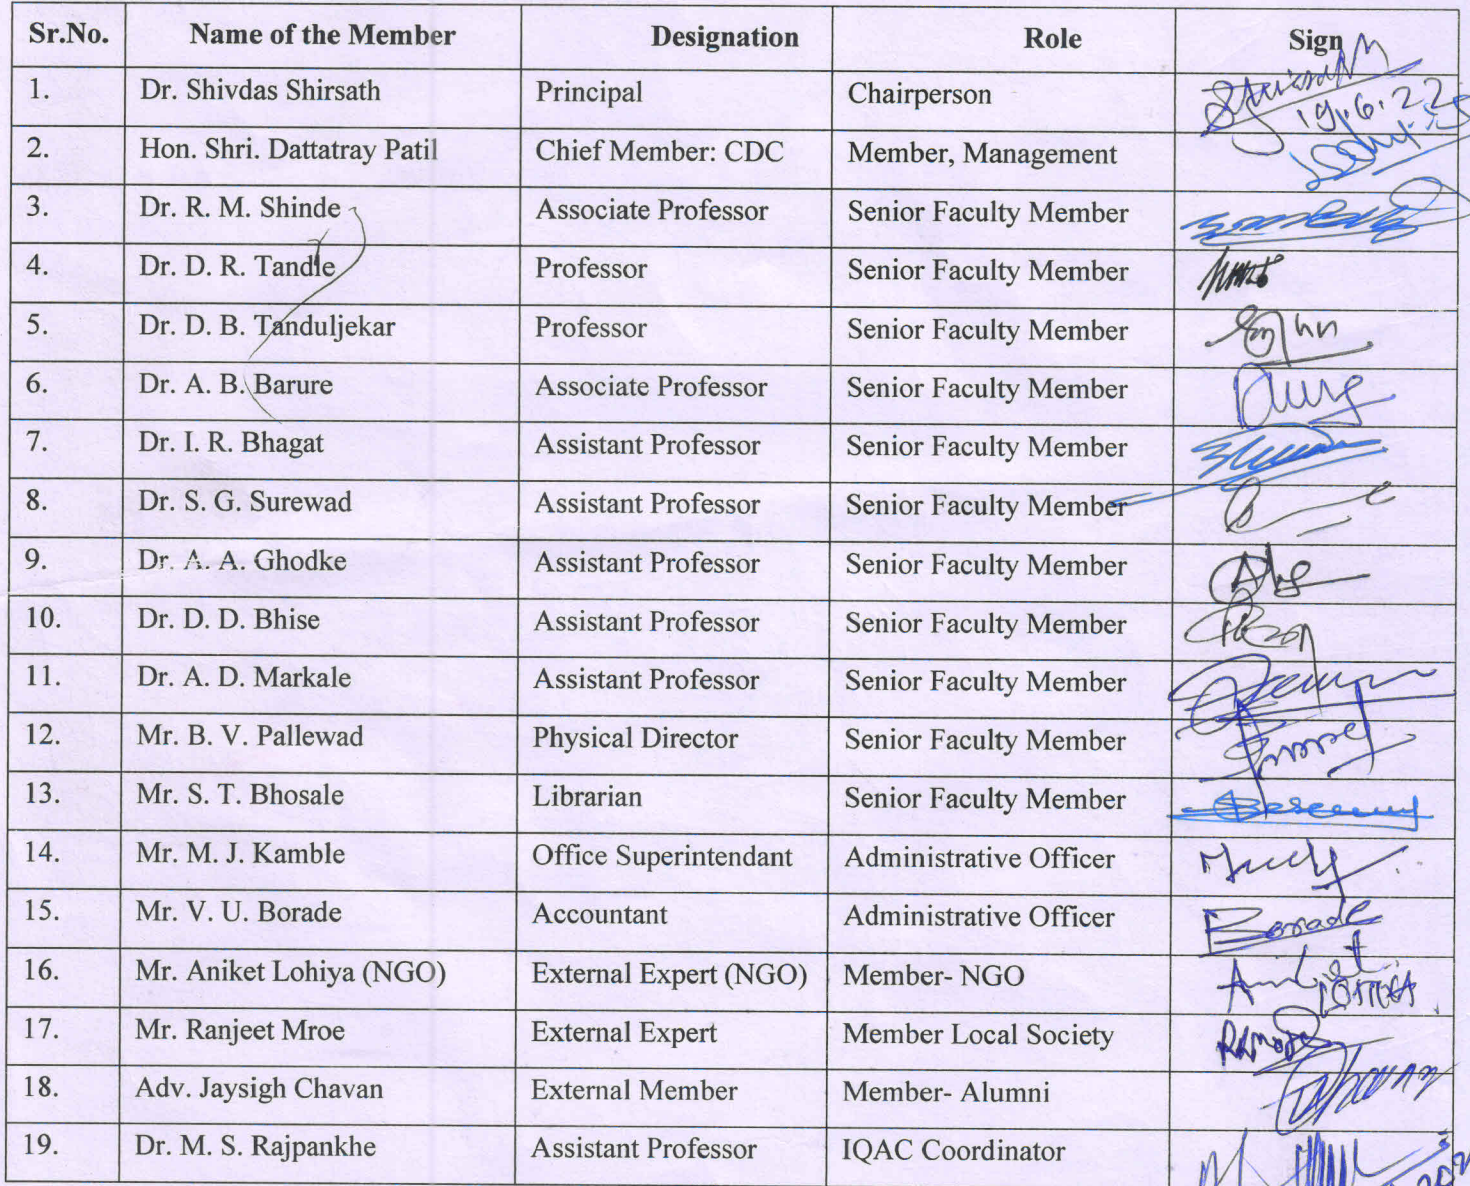 Sr.No. Name of the Member Designation Role Sign
1. Dr. Shivdas Shirsath Principal Chairperson
19.6.22
2. Hon. Shri. Dattatray Patil Chief Member: CDC Member, Management
3. Dr. R. M. Shinde Associate Professor Senior Faculty Member
4. Dr. D. R. Tandle Professor Senior Faculty Member
5. Dr. D. B. Tanduljekar Professor Senior Faculty Member
6. Dr. A. B. Barure Associate Professor Senior Faculty Member
7. Dr. I. R. Bhagat Assistant Professor Senior Faculty Member
8. Dr. S. G. Surewad Assistant Professor Senior Faculty Member
9. Dr. A. A. Ghodke Assistant Professor Senior Faculty Member
10. Dr. D. D. Bhise Assistant Professor Senior Faculty Member
11. Dr. A. D. Markale Assistant Professor Senior Faculty Member
12. Mr. B. V. Pallewad Physical Director Senior Faculty Member
13. Mr. S. T. Bhosale Librarian Senior Faculty Member
14. Mr. M. J. Kamble Office Superintendant Administrative Officer
15. Mr. V. U. Borade Accountant Administrative Officer Borade
16. Mr. Aniket Lohiya (NGO) External Expert (NGO) Member- NGO
17. Mr. Ranjeet Mroe External Expert Member Local Society
18. Adv. Jaysigh Chavan External Member Member- Alumni
19. Dr. M. S. Rajpankhe Assistant Professor IQAC Coordinator